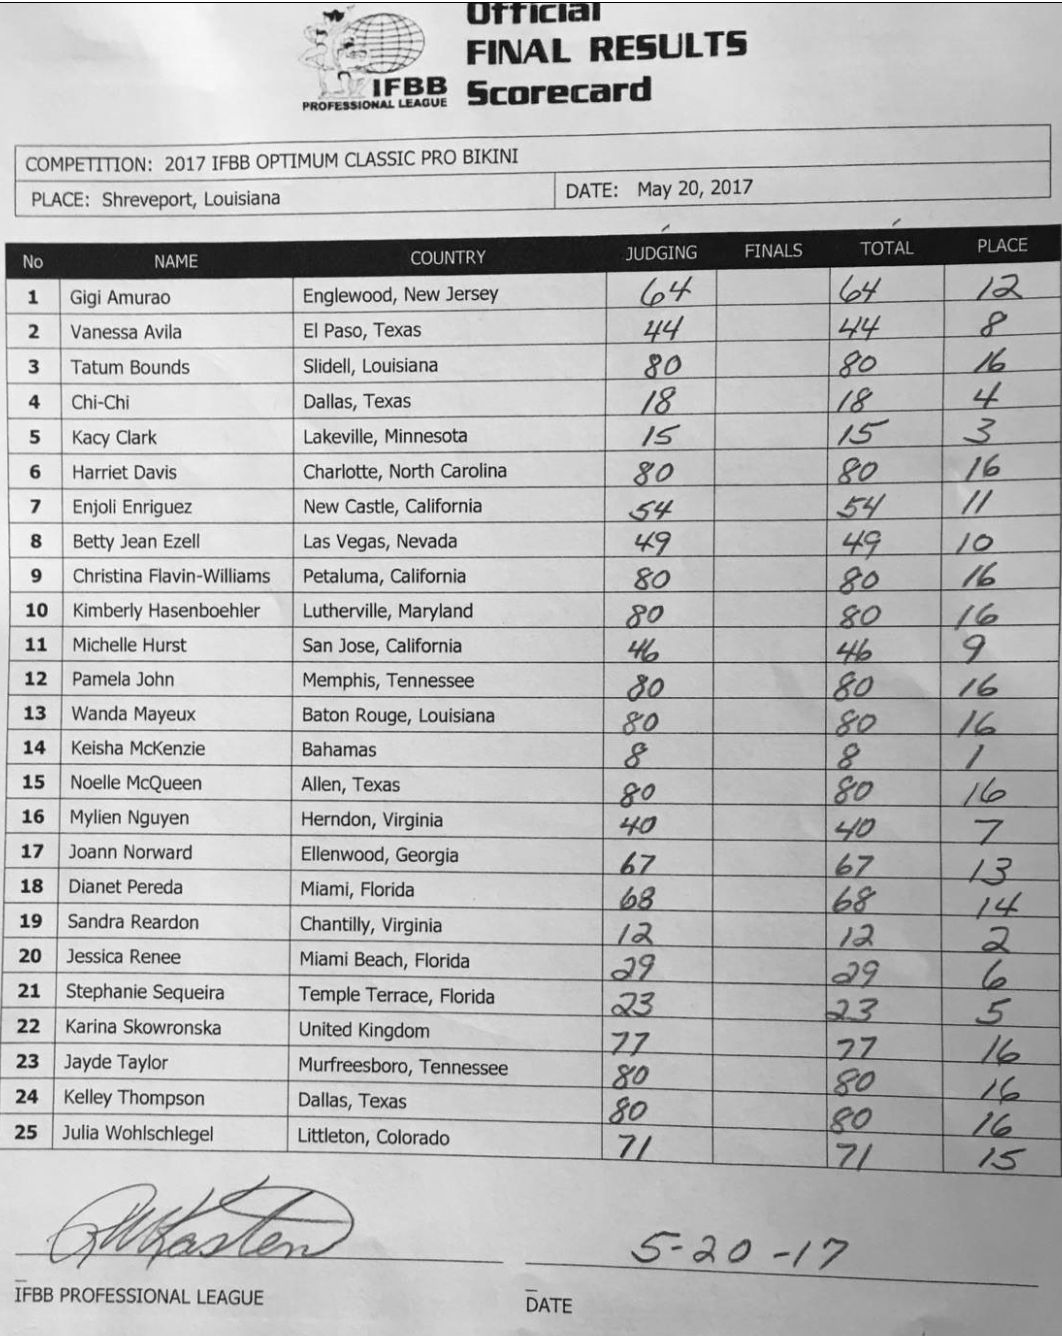 Official
FINAL RESULTS
IFBB Scorecard
PROFESSIONAL LEAGUE
COMPETITION: 2017 IFBB OPTIMUM CLASSIC PRO BIKINI
PLACE: Shreveport, Louisiana DATE: May 20, 2017
No NAME COUNTRY JUDGING FINALS TOTAL PLACE
1 Gigi Amurao Englewood, New Jersey 64 64 12
2 Vanessa Avila El Paso, Texas 44 44 8
3 Tatum Bounds Slidell, Louisiana 80 80 16
4 Chi-Chi Dallas, Texas 18 18 4
5 Kacy Clark Lakeville, Minnesota 15 15 3
6 Harriet Davis Charlotte, North Carolina 80 80 16
7 Enjoli Enriguez New Castle, California 54 54 11
8 Betty Jean Ezell Las Vegas, Nevada 49 49 10
9 Christina Flavin-Williams Petaluma, California 80 80 16
10 Kimberly Hasenboehler Lutherville, Maryland 80 80 16
11 Michelle Hurst San Jose, California 46 46 9
12 Pamela John Memphis, Tennessee 80 80 16
13 Wanda Mayeux Baton Rouge, Louisiana 80 80 16
14 Keisha McKenzie Bahamas 8 8 1
15 Noelle McQueen Allen, Texas 80 80 16
16 Mylien Nguyen Herndon, Virginia 40 40 7
17 Joann Norward Ellenwood, Georgia 67 67 13
18 Dianet Pereda Miami, Florida 68 68 14
19 Sandra Reardon Chantilly, Virginia 12 12 2
20 Jessica Renee Miami Beach, Florida 29 29 6
21 Stephanie Sequeira Temple Terrace, Florida 23 23 5
22 Karina Skowronska United Kingdom 77 77 16
23 Jayde Taylor Murfreesboro, Tennessee 80 80 16
24 Kelley Thompson Dallas, Texas 80 80 16
25 Julia Wohlschlegel Littleton, Colorado 71 71 15
5-20-17
IFBB PROFESSIONAL LEAGUE DATE